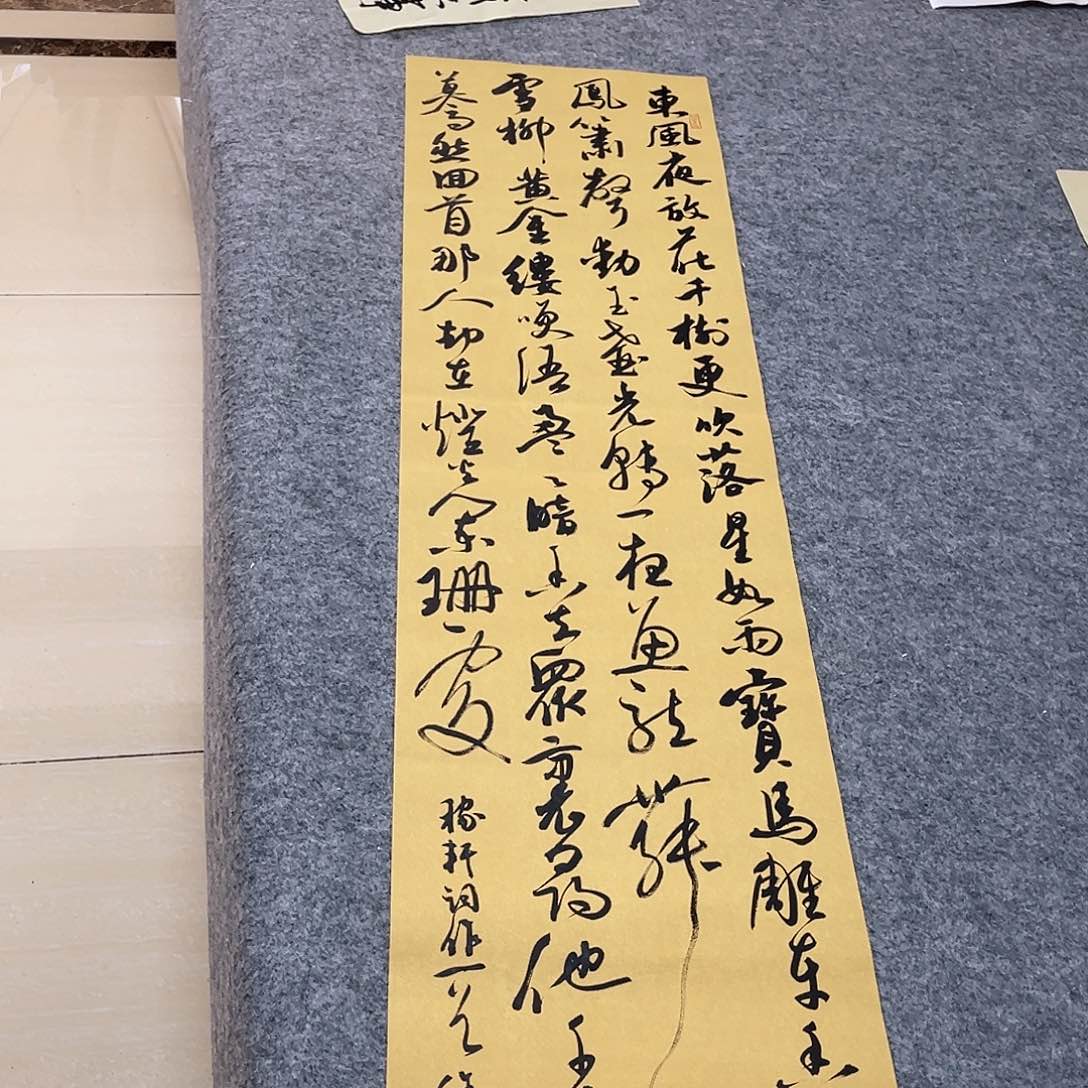 東風夜放花千樹更吹落星如雨寶馬雕車香
鳳簫聲動玉壺光轉一夜魚龍舞
雪柳黄金縷笑語盈〻暗香去眾裏尋他千
驀然回首那人却在燈火闌珊處
稼軒詞作一首